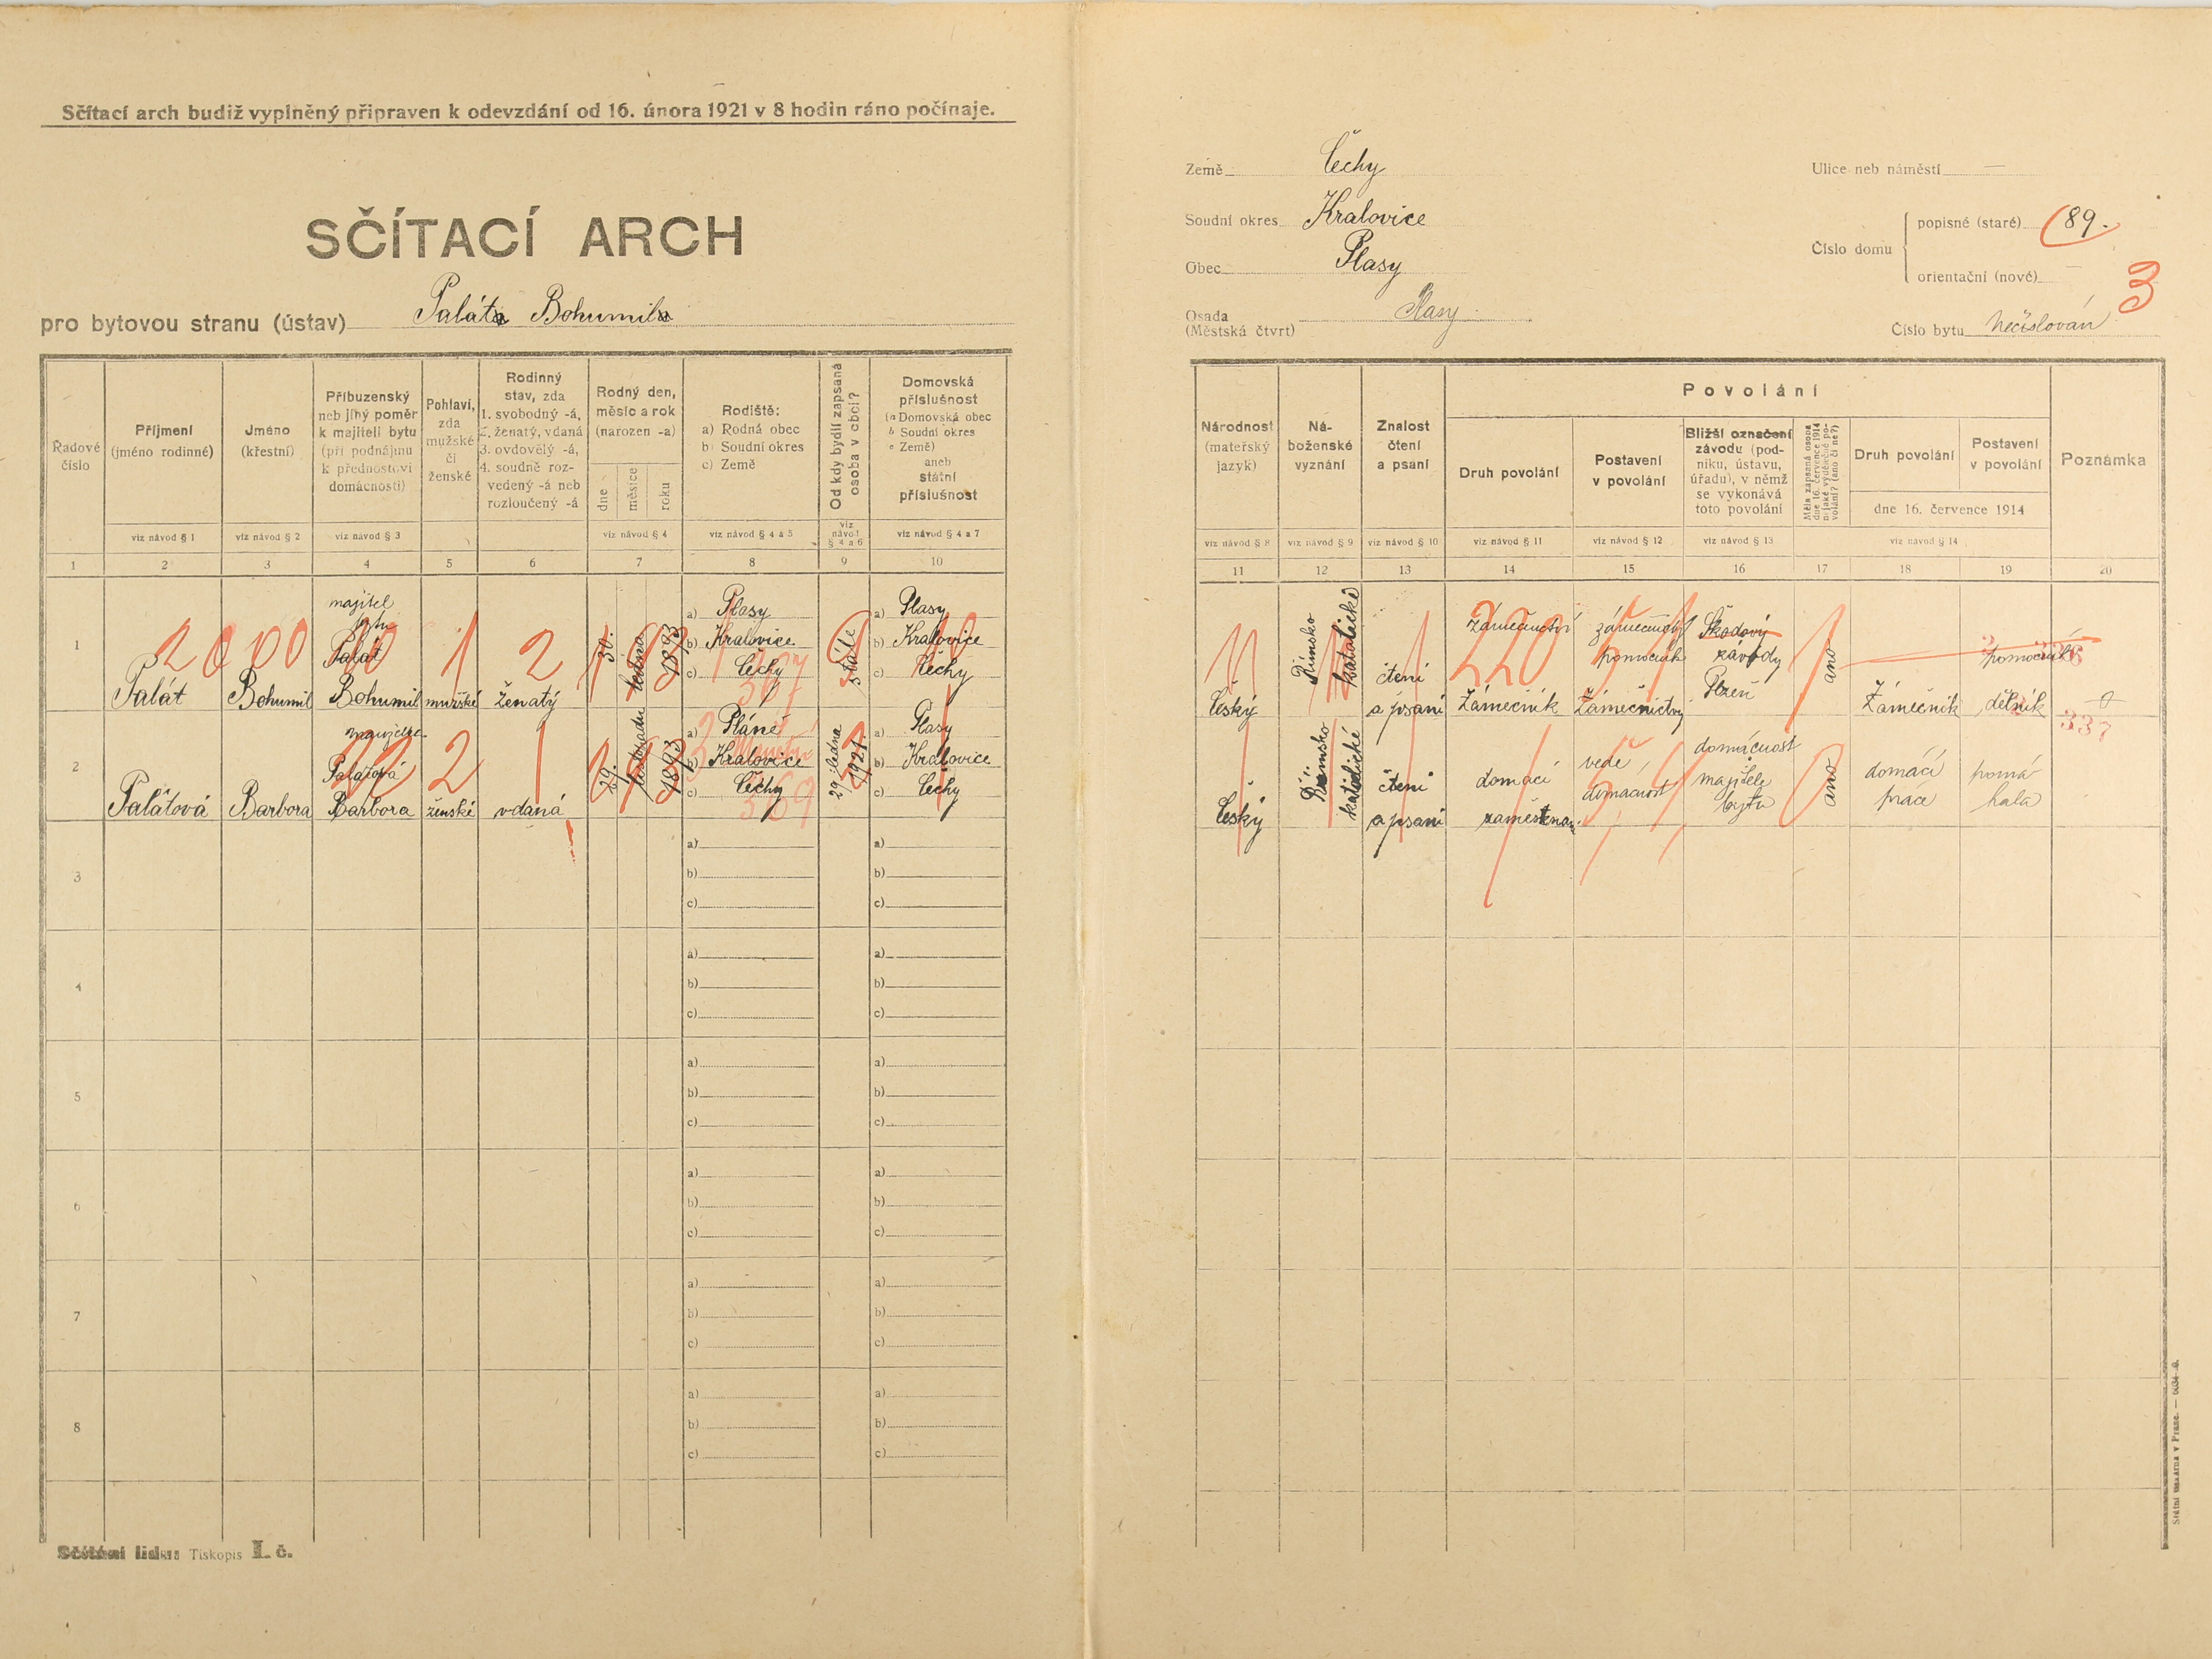 Sčítací arch budiž vyplněný připraven k odevzdání od 16. února 1921 v 8 hodin ráno počínaje.
SČÍTACÍ ARCH
pro bytovou stranu (ústav) Paláta Bohumila
Země Čechy
Soudní okres Kralovice
Obec Plasy
Osada Plasy
(Městská čtvrt)
Ulice neb náměstí —
Číslo domu
popisné (staré) 89.
orientační (nové) —
3
Číslo bytu nečíslován
Řadové číslo
Příjmení (jméno rodinné)
Jméno (křestní)
Příbuzenský neb jiný poměr k majiteli bytu (při podnájmu k přednostovi domácnosti)
Pohlaví, zda mužské či ženské
Rodinný stav, zda 1. svobodný -á, 2. ženatý, vdaná 3. ovdovělý -á, 4. soudně rozvedený -á neb rozloučený -á
Rodný den, měsíc a rok (narozen -a)
dne měsíce roku
Rodiště: a) Rodná obec b) Soudní okres c) Země
Od kdy bydlí zapsaná osoba v obci?
Domovská příslušnost (a Domovská obec b Soudní okres c Země) aneb státní příslušnost
viz návod § 1 viz návod § 2 viz návod § 3 viz návod § 4 viz návod § 4 a 5 viz návod § 4 a 6 viz návod § 4 a 7
1 2 3 4 5 6 7 8 9 10
Národnost (mateřský jazyk)
Náboženské vyznání
Znalost čtení a psaní
Povolání
Druh povolání
Postavení v povolání
Bližší označení závodu (podniku, ústavu, úřadu), v němž se vykonává toto povolání
Měla zapsaná osoba dne 16. července 1914 nějaké výdělečné povolání? (ano či ne?)
Druh povolání
Postavení v povolání
dne 16. července 1914
Poznámka
viz návod § 8 viz návod § 9 viz návod § 10 viz návod § 11 viz návod § 12 viz návod § 13 viz návod § 14
11 12 13 14 15 16 17 18 19 20
1 Palát Bohumil
majitel bytu Palát Bohumil
mužské ženatý
30. ledna 1893
a) Plasy
b) Kralovice
c) Čechy
367
stále
a) Plasy
b) Kralovice
c) Čechy
český
Římsko katolické
čtení a psaní
Zámečnictví
Zámečník
zámečnický pomocník
Zámečnictvý
Škodovy závody Plzeň
220
ano
Zámečník
pomocník
dělník
2 Palátová Barbora
manželka Palátová Barbora
ženské vdaná
29. listopadu 1893
a) Pláně
b) Kralovice
c) Čechy
369
29 ledna 1921
a) Plasy
b) Kralovice
c) Čechy
český
Římsko katolické
čtení a psaní
domácí zaměstnan.
vede domácnost
domácnost majitele bytu
ano
domácí práce
pomáhala
337
3 a) a)
b) b)
c) c)
4 a) a)
b) b)
c) c)
5 a) a)
b) b)
c) c)
6 a) a)
b) b)
c) c)
7 a) a)
b) b)
c) c)
8 a) a)
b) b)
c) c)
Sčítání lidu: Tiskopis I. č.
Státní tiskárna v Praze.